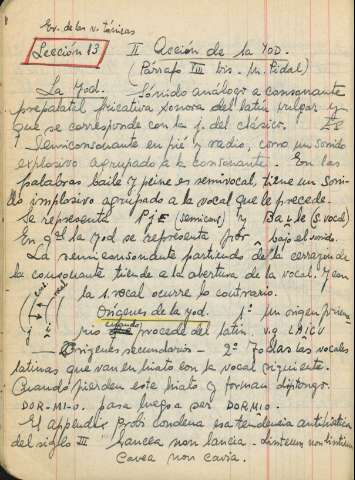 Ev. de las v. tónicas
Lección 13 II Acción de la YOD.
(Párrafo VIII bis. M. Pidal)
La Yod. Sonido análogo a consonante
prepalatal fricativa sonora del latín vulgar y
que se corresponde con la j. del clásico.
Semiconsonante en pié y radio, como un sonido
explosivo agrupado a la consonante. En las
palabras baile y peine es semivocal, tiene un soni-
do implosivo agrupado a la vocal que le precede.
Se representa PjE (semicons) y Baile (s. vocal)
En gral la Yod se representa por bajo el sonido.
La semiconsonante partiendo de la cerrazón de
la consonante tiende a la abertura de la vocal. Y con
la s. vocal ocurre lo contrario.
Orígenes de la yod. 1º un origen prima-
rio cuando procede del latín. v.g LAICU
Orígenes secundarios - 2º Todas las vocales
latinas que van en hiato con la vocal siguiente.
Cuando pierden este hiato y forman diptongo.
DOR-MI-O. pasa luego a ser DORMIO.
El appendix Probi condena esa tendencia antihiática
del siglo III lancea non lancia.
Cavea non cavia.